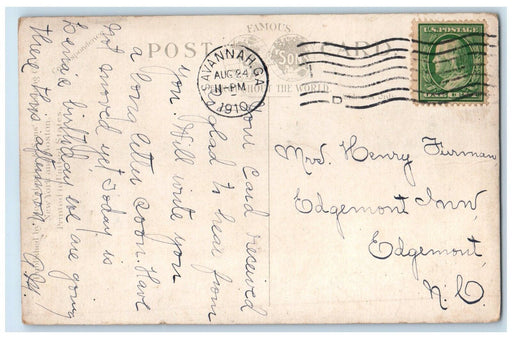 POST CARD
FAMOUS
THROUGHOUT THE WORLD
SAVANNAH, GA.
AUG 24
11-PM
1910
D
U.S. POSTAGE
Your card received
glad to hear from
you. Will write you
a long letter soon. Have
not moved yet. Today is
birthday we are going
there this afternoon.
Mrs. Henry Furman
Edgemont Inn,
Edgemont,
N.C.